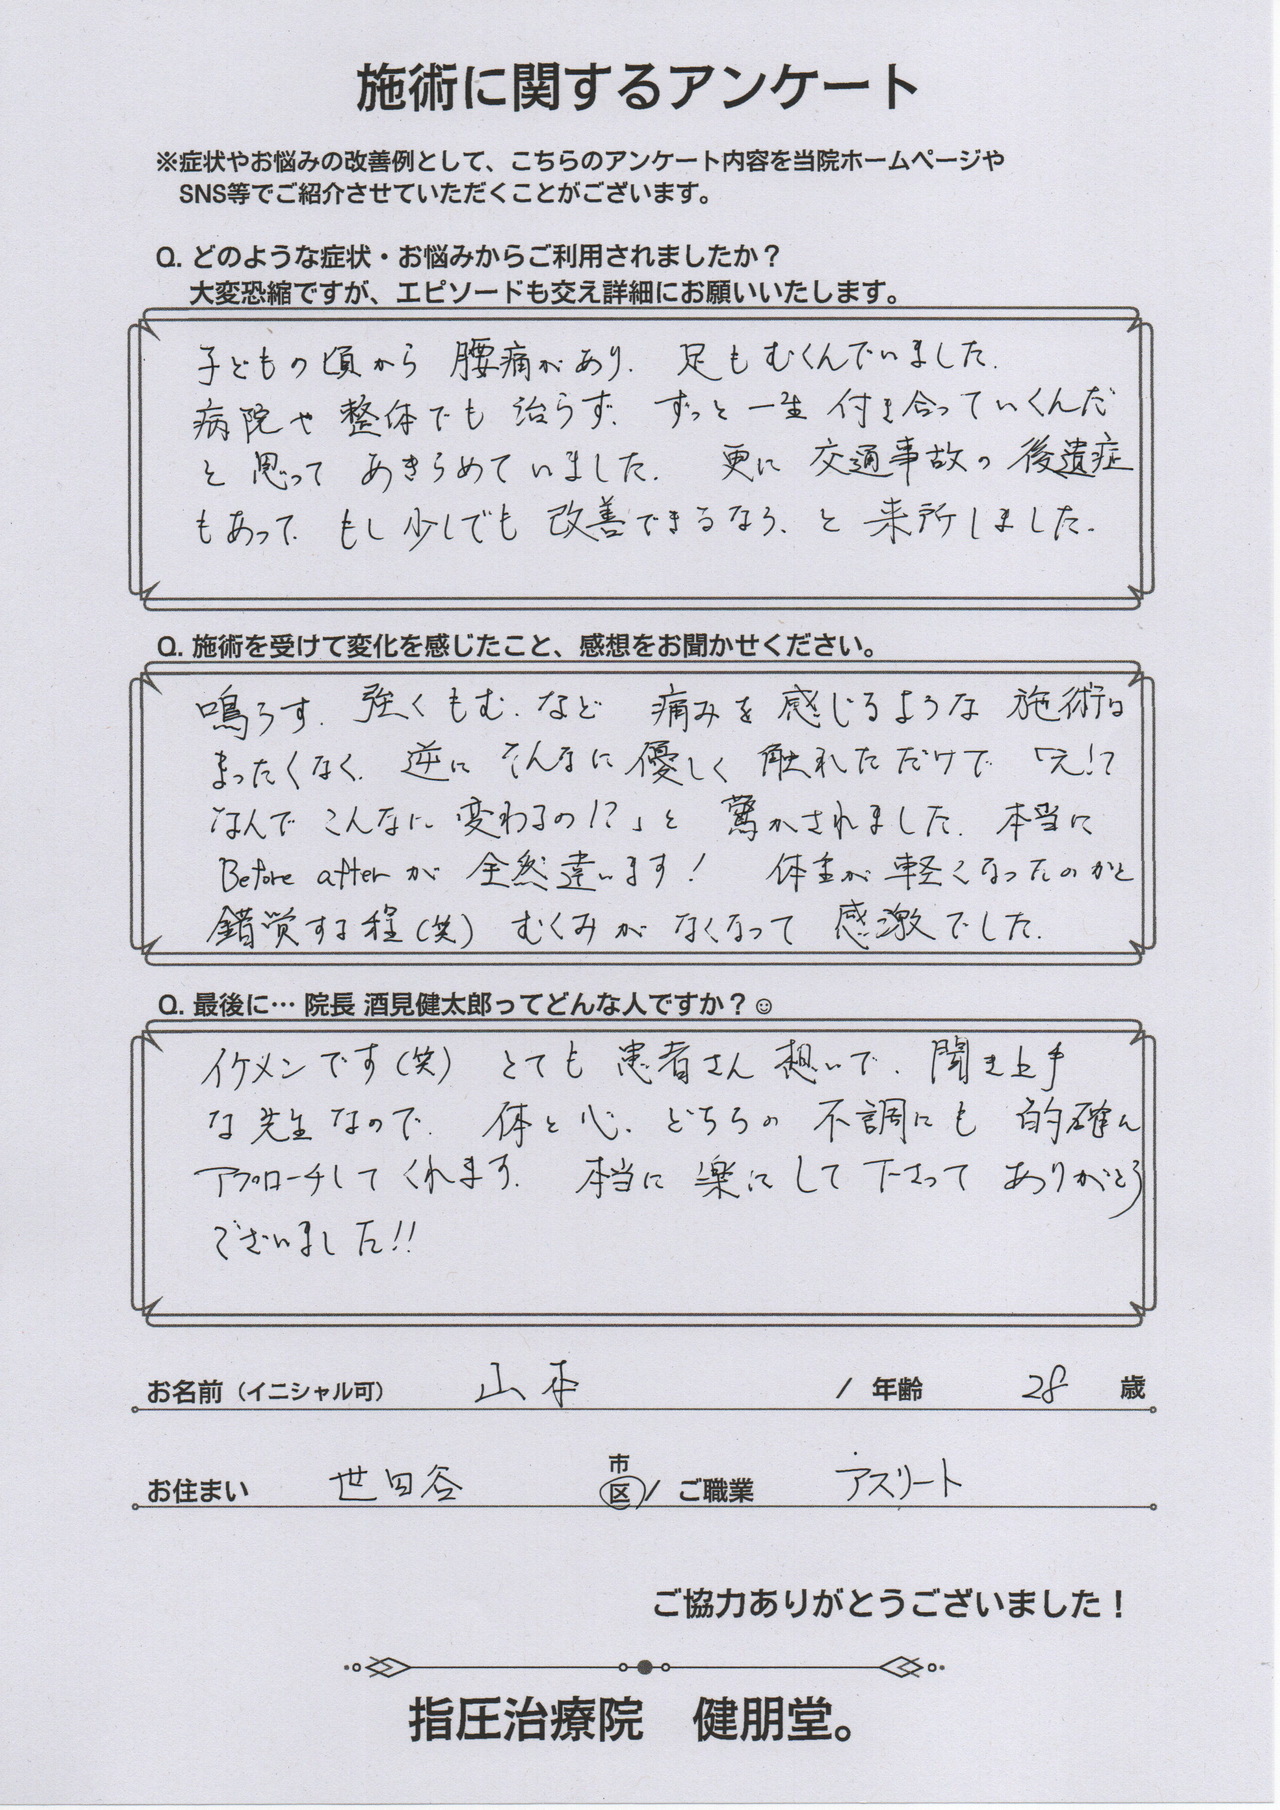 施術に関するアンケート
※症状やお悩みの改善例として、こちらのアンケート内容を当院ホームページや
SNS等でご紹介させていただくことがございます。
Q. どのような症状・お悩みからご利用されましたか？
大変恐縮ですが、エピソードも交え詳細にお願いいたします。
子どもの頃から 腰痛があり、足もむくんでいました。
病院や整体でも治らず、ずっと一生付き合っていくんだ
と思って あきらめていました。更に 交通事故の後遺症
もあって、もし少しでも改善できるなら、と来所しました。
Q. 施術を受けて変化を感じたこと、感想をお聞かせください。
鳴らす、強くもむ、など 痛みを感じるような施術は
まったくなく、逆に そんなに優しく触れただけで「え！？
なんで こんなに 変わるの！？」と驚かされました。本当に
Before afterが 全然違います！ 体重が軽くなったのかと
錯覚する程（笑）むくみが なくなって 感激でした。
Q. 最後に… 院長 酒見健太郎ってどんな人ですか？☺
イケメンです（笑） とても患者さん想いで、聞き上手
な先生なので、体と心、どちらの不調にも的確に
アプローチしてくれます。本当に楽にして下さって ありがとう
ございました!!
お名前（イニシャル可） 山本 / 年齢 28 歳
お住まい 世田谷 市 区 / ご職業 アスリート
ご協力ありがとうございました！
指圧治療院 健朋堂。